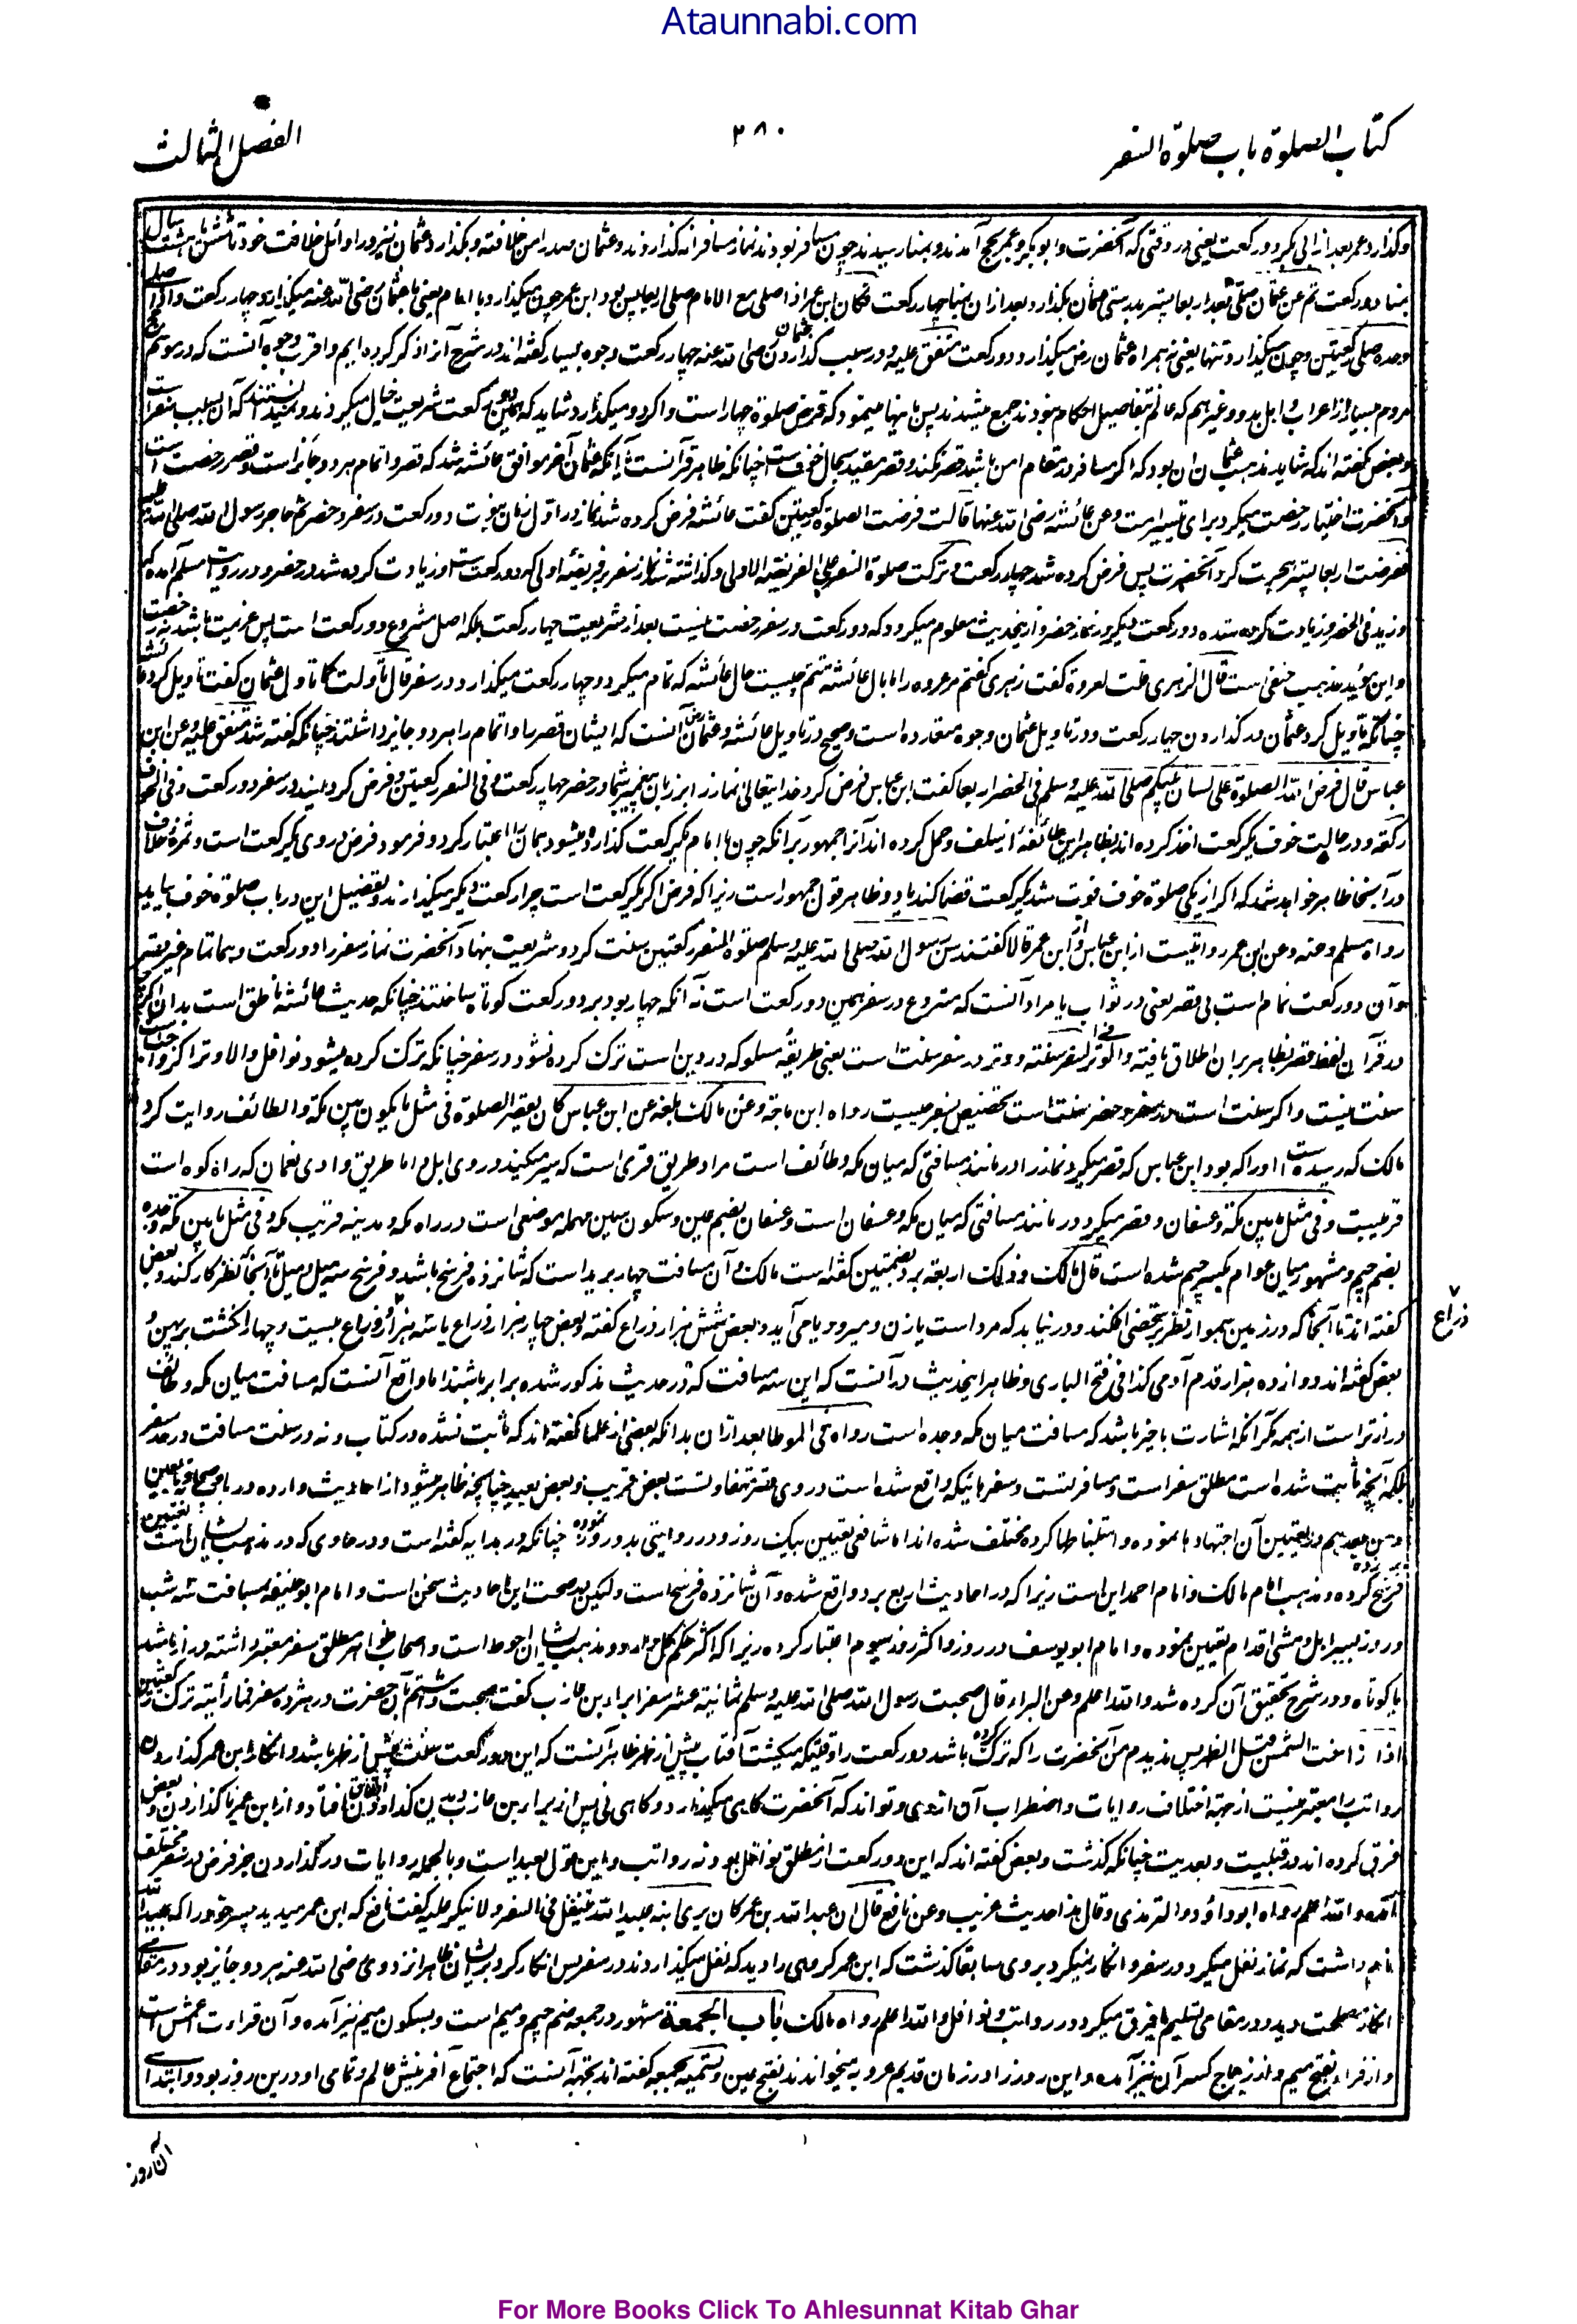 Ataunnabi.com
کتاب الصلوة باب صلوة السفر
۲۸۰
الفصل الثالث
وگذارد عمر بعد از ابی بکر دو رکعت یعنی در وقتی که آنحضرت و ابوبکر و عمر بحج آمدند و بمنا رسیدند چون مسافر بودند نماز مسافرانه گذاردند و عثمان صدرا من خلافته و بگذارد عثمان نیز در اوائل خلافت خود تا شش یا هشت سال
بمنا دو رکعت ثم ان عثمان صلی بعد اربعا پستر بدرستی عثمان بگذارد بعد ازان بمنا چهار رکعت فکان ابن عمر اذا صلی مع الامام صلی اربعا پس بود ابن عمر چون میگذارد با امام یعنی با عثمان رضی الله عنه میگذارد چهار رکعت و اذا صلی
وحده صلی رکعتین و چون میگذارد تنها یعنی نه همراه عثمان رض میگذارد دو رکعت متفق علیه و در سبب گذاردن عثمان رضی الله عنه چهار رکعت وجوه بسیار گفته اند در شرح آنرا ذکر کرده ایم و اقرب وجوه آنست که در موسم حج
مردم بسیار از اعراب و اهل بدو و غیرهم که عالم بتفاصیل احکام نبودند جمع میشدند پس با اینها مینمود که فرض صلوة چهار است و اگر دو میگذارد شاید که همین دو رکعت شریعت خیال میکردند و نمیدانستند که آن بسبب سفر است
و بعضی گفته اند که شاید مذهب عثمان آن بود که اگر مسافر در مقام امن باشد قصر نکند و قصر مقید بحال خوف است چنانکه ظاهر قرآنست یا آنکه عثمان آخر موافق عائشه شد که قصر و اتمام هر دو جائز است و قصر رخصت است
و آنحضرت اختیار رخصت میکرد برای تیسیر امت وعن عائشه رضی الله عنها قالت فرضت الصلوة رکعتین گفت عائشه فرض کرده شد نماز در اول زمان نبوت دو رکعت در سفر و حضر ثم هاجر رسول الله صلی الله علیه وسلم
ففرضت اربعا پستر هجرت کرد آنحضرت پس فرض کرده شد چهار رکعت و ترکت صلوة السفر علی الفریضة الاولی و گذاشته شد نماز سفر بر فریضهٔ اولی که دو رکعت است و زیادت کرده شد در حضر و در روایت مسلم آمده که
وزید فی الحضر و زیادت کرده شده دو رکعت دیگر در نماز حضر و ازینحدیث معلوم میگردد که دو رکعت در سفر رخصت نیست بعد از شریعت چهار رکعت بلکه اصل مشروع دو رکعت است پس عزیمت باشد نه رخصت
و این مؤید مذهب حنفی است قال الزهری قلت لعروة گفت زهری گفتم مر عروه را ما بال عائشة تتم چیست حال عائشه که تمام میکرد و چهار رکعت میگذارد در سفر قال تاولت کما تاول عثمان گفت تاویل کرد عائشه
چنانکه تاویل کرد عثمان در گذاردن چهار رکعت و در تاویل عثمان وجوه متعدده است و صحیح در تاویل عائشه و عثمان رض آنست که ایشان قصر را و اتمام را هر دو جایز داشتند چنانکه گفته شد متفق علیه وعن ابن
عباس قال فرض الله الصلوة علی لسان نبیکم صلی الله علیه وسلم فی الحضر اربعا گفت ابن عباس فرض کرد خدایتعالی نماز را بر زبان پیغمبر شما در حضر چهار رکعت و فی السفر رکعتین و فرض گردانید در سفر دو رکعت و فی الخوف
رکعة و در حالت خوف یکرکعت اخذ کرده اند بظاهر این طائفهٔ از سلف و حمل کرده اند آنرا جمهور برآنکه چون با امام یکرکعت گذارده میشود همان را اعتبار کرد و فرمود فرض در وی یکرکعت است و ثمرهٔ خلاف
در آنجا ظاهر خواهد شد که اگر از یکی صلوة خوف فوت شد یکرکعت قضا کند یا دو و ظاهر قول جمهور است زیرا که فرض اگر یکرکعت است چرا رکعت دیگر میگذارند و تفصیل این در باب صلوة خوف بیاید
رواه مسلم وعنه وعن ابن عمر روایتیست از ابن عباس و از ابن عمر قالا گفتند سن رسول الله صلی الله علیه وسلم صلوة السفر رکعتین سنت کرد و شریعت نهاد آنحضرت نماز سفر را دو رکعت و هما تمام غیر قصر
و آن دو رکعت تمام است بی قصر یعنی در ثواب یا مراد آنست که مشروع در سفر همین دو رکعت است نه آنکه چهار بود بر دو رکعت کوتاه ساختند چنانکه حدیث عائشه ناطق است بدان اگرچه
در قرآن لفظ قصر بظاهر بران اطلاق یافته و الوتر فی السفر سنة و وتر در سفر سنت است یعنی طریقهٔ مسلوکه در دین است ترک کرده نشود در سفر چنانکه ترک کرده میشود نوافل والا وتر اگر واجب است
سنت نیست و اگر سنت است در سفر و حضر سنت است تخصیص بسفر چیست رواه ابن ماجة وعن مالک بلغه عن ابن عباس کان یقصر الصلوة فی مثل ما یکون بین مکة والطائف روایت کرد
مالک که رسیده است او را که بود ابن عباس که قصر میکرد نماز را در مانند مسافتی که میان مکه و طائف است مراد طریق قری است که سیر میکنند در وی ابل و اما طریق وادی نعمان که راه کوه است
قریبست و فی مثل ما بین مکة وعسفان و قصر میکرد در مانند مسافتی که میان مکه و عسفان است و عسفان بضم عین و سکون سین مهمله موضعی است در راه مکه و مدینه قریب مکه و فی مثل ما بین مکة وجدة
بضم جیم و مشهور میان عوام بکسر جیم شده است قال مالک وذلک اربعة برد بضمتین گفته است مالک و آن مسافت چهار برید است که شانزده فرسخ باشد و فرسخ سه میل و میل تا آنجا که نظر کار کند و بعضی
گفته اند تا آنجا که در زمین هموار نظر بر شخصی افکنند و در نیابد که مرد است یا زن و میرود یا می آید و بعضی شش هزار ذراع گفته و بعضی چهار هزار ذراع یا سه هزار ذراع و ذراع بیست و چهار انگشت بر پهن و
ذراع
بعضی گفته اند دوازده هزار قدم آدمی کذا فی فتح الباری و ظاهر اینحدیث در آنست که این سه مسافت که در حدیث مذکور شده برابر باشند اما واقع آنست که مسافت میان مکه و طائف
درازتر است از همه مگر آنکه اشارت باخیر باشد که مسافت میان مکه و جده است رواه فی الموطا بعد ازان بدانکه بعضی از علما گفته اند که ثابت نشده در کتاب و نه در سنت مسافت در حد سفر
بلکه آنچه ثابت شده است مطلق سفر است و مسافرتست و سفرهائیکه واقع شده است در وی قصر متفاوتست بعضی قریب و بعضی بعید چنانچه ظاهر میشود از احادیث وارده در باب و صحابه و تابعین
و من بعدهم در تعیین آن اجتهادها نموده و استنباطها کرده مختلف شده اند اما شافعی تعیین بیک روز و در روایتی بدو روز نموده چنانکه در هدایه گفته است و در حاوی که در مذهب ایشان است تعیین
فرسخ کرده و مذهب امام مالک و امام احمد این است زیرا که در احادیث اربع برد واقع شده و آن شانزده فرسخ است ولیکن در صحت این احادیث سخن است و امام ابوحنیفه بمسافت سه شب
و روز بسیر ابل و مشی اقدام تعیین نموده و امام ابویوسف در روز و اکثر روز سیوم اعتبار کرده زیرا که اکثر حکم کل دارد و مذهب ایشان احوط است و اصحاب ظواهر مطلق سفر معتبر داشته دراز باشد
یا کوتاه و در شرح تحقیق آن کرده شد والله اعلم وعن البراء قال صحبت رسول الله صلی الله علیه وسلم ثمانیة عشر سفرا براء بن عازب گفت صحبت داشتم بآن حضرت در هژده سفر فما رأیته ترک رکعتین
اذا زاغت الشمس قبل الظهر پس ندیدم من آنحضرت را که ترک کرده باشد دو رکعت را وقتیکه میگشت آفتاب پیش از ظهر ظاهر آنست که این دو رکعت سنت پیش از ظهر باشد و انکار ابن عمر گذاردن
رواتب را معتبر نیست از جهة اختلاف روایات و اضطراب آن از وی و تواند که آنحضرت گاهی میگذارد و گاهی نی پس از براء بن عازب دیدن گذاردن اتفاق افتاد و از ابن عمر ناگذاردن و بعضی
فرق کرده اند در قبلیت و بعدیت چنانکه گذشت و بعضی گفته اند که این دو رکعت از مطلق نوافل بود نه رواتب و این قول بعید است و بالجمله روایات در گذاردن جز فرض در سفر مختلف
آمده والله اعلم رواه ابوداؤد والترمذی وقال هذا حدیث غریب وعن نافع قال ان عبدالله بن عمر کان یری ابنه عبیدالله یتنفل فی السفر ولا ینکر علیه گفت نافع که ابن عمر میدید پسر خود را که عبیدالله
نام داشت که نماز نفل میکرد در سفر و انکار نمیکرد بر وی سابقا گذشت که ابن عمر گروهی را دید که نفل میگذاردند در سفر پس انکار کرد بر ایشان ظاهرا نزد وی رضی الله عنه هر دو جائز بود در مقامی
انکار مصلحت دید و در مقامی تسلیم یا فرق میکرد در رواتب و نوافل والله اعلم رواه مالک باب الجمعة مشهور در جمعه ضم جیم و میم است و بسکون میم نیز آمده و آن قراءت اعمش است
و از فراء بفتح میم و از زجاج کسر آن نیز آمده و این روز را در زمان قدیم عروبه میخواندند بفتح عین و تسمیه بجمعه گفته اند بجهة آنست که اجتماع آفرینش عالم و تمامی او درین روز بود و ابتدای
آن روز
For More Books Click To Ahlesunnat Kitab Ghar